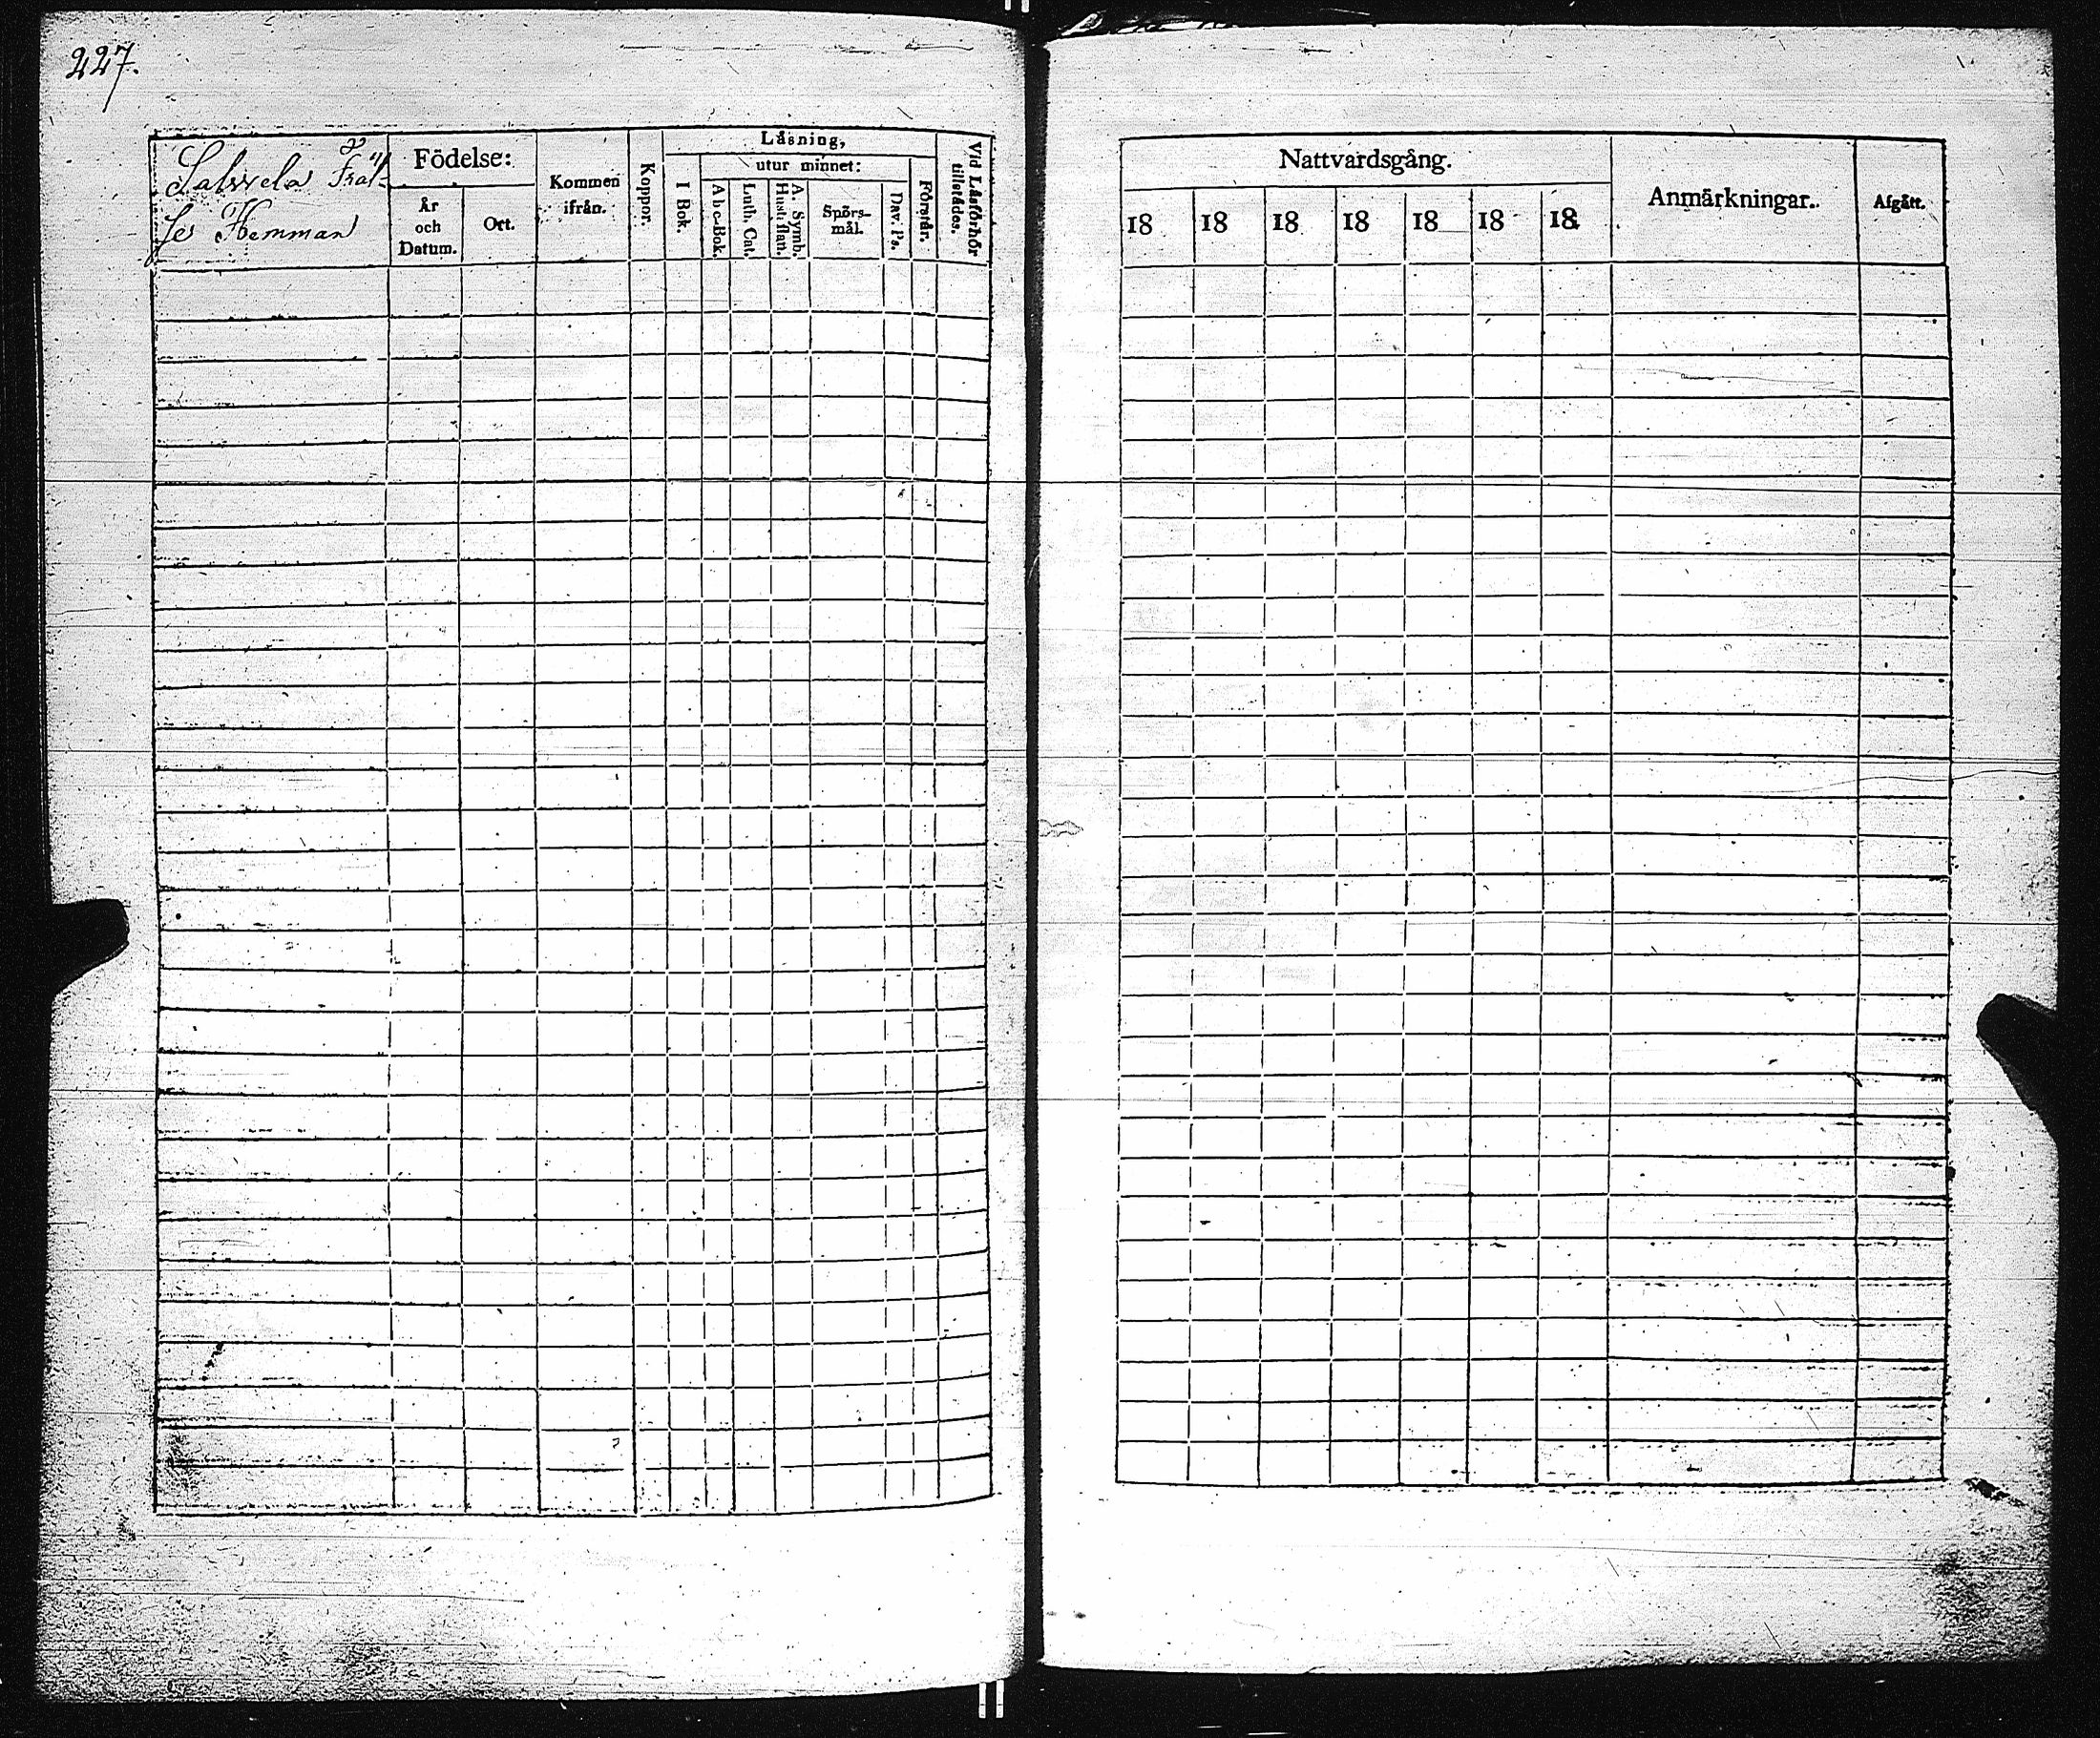 227.
Frät-
se Hemman
Födelse:
År
och
Datum.
Ort.
Kommen
ifrån.
Koppor.
Låsning,
I Bok.
utur minnet:
A b c-Bok.
Luth. Cat.
A. Symb.
Hust. flan.
Spörs-
mål.
Dav. Ps.
Förstår.
Vid Låsförhör
tillstådes.
Nattvardsgång.
18 18 18 18 18 18 18
Anmärkningar.
Afgått.